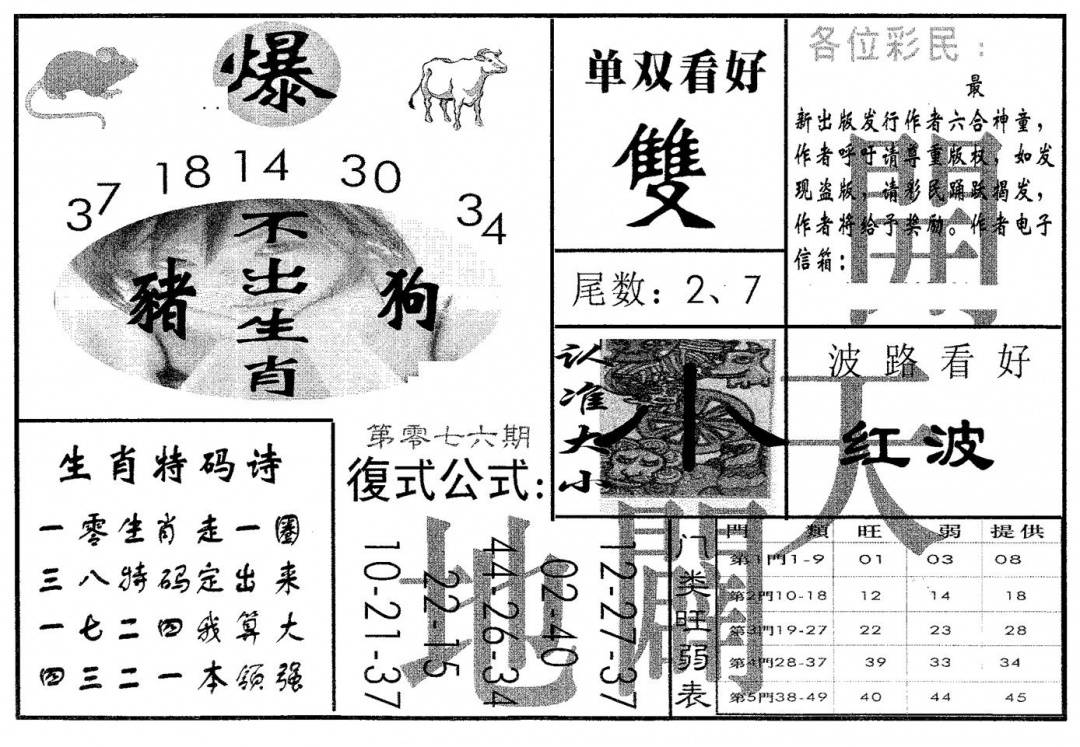 爆
37 18 14 30 34
不出生肖
豬
狗
单双看好
雙
尾数：2、7
各位彩民：
最
新出版发行作者六合神童，
作者呼吁请尊重版权，如发
现盗版，请彩民踊跃揭发，
作者将给予奖励。作者电子
信箱：
開
天
认准大小
小
波路看好
红波
生肖特码诗
一零生肖走一圈
三八特码定出来
一七二四我算大
四三二一本领强
第零七六期
復式公式：
10-21-37
22-15
44-26-34
02-40
12-27-37
地
開
八类旺弱表
門 類 旺 弱 提供
第1門1-9 01 03 08
第2門10-18 12 14 18
第3門19-27 22 23 28
第4門28-37 39 33 34
第5門38-49 40 44 45